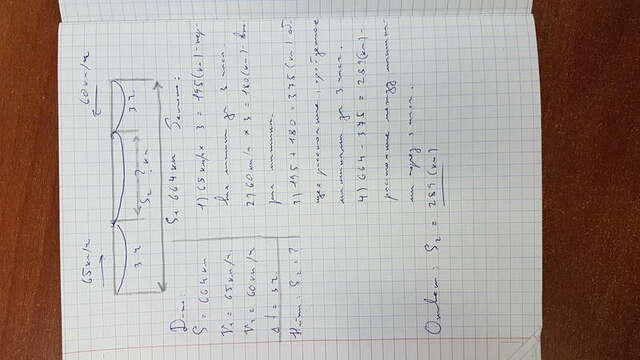 65 км/ч
60 км/ч
3 ч
S₂ - ? км
3 ч
S = 664 км
Дано:
S = 664 км
V₁ = 65 км/ч
V₂ = 60 км/ч
Δt = 3 ч
Найти: S₂ = ?
Решение:
1) 65 км/ч × 3 = 195 (км) - пер-
вая машина за 3 часа.
2) 60 км/ч × 3 = 180 (км) - вто-
рая машина.
3) 195 + 180 = 375 (км) об-
щее расстояние, пройденное
машинами за 3 часа.
4) 664 - 375 = 289 (км) -
расстояние между машина-
ми через 3 часа.
Ответ: S₂ = 289 (км)